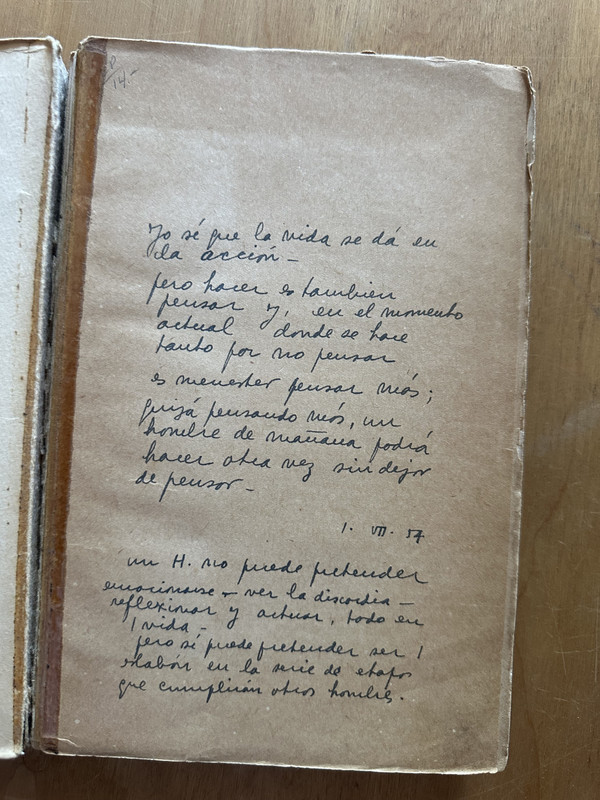 14.-
Yo sé que la vida se dá en
la acción -
pero hacer es también
pensar y, en el momento
actual donde se hace
tanto por no pensar
es menester pensar más;
quizá pensando más, un
hombre de mañana podrá
hacer otra vez sin dejar
de pensar -
1. VII. 57
un H. no puede pretender
emocionarse - ver la discordia -
reflexionar y actuar, todo en
1 vida -
pero sí puede pretender ser 1
eslabón en la serie de etapas
que cumplirán otros hombres.